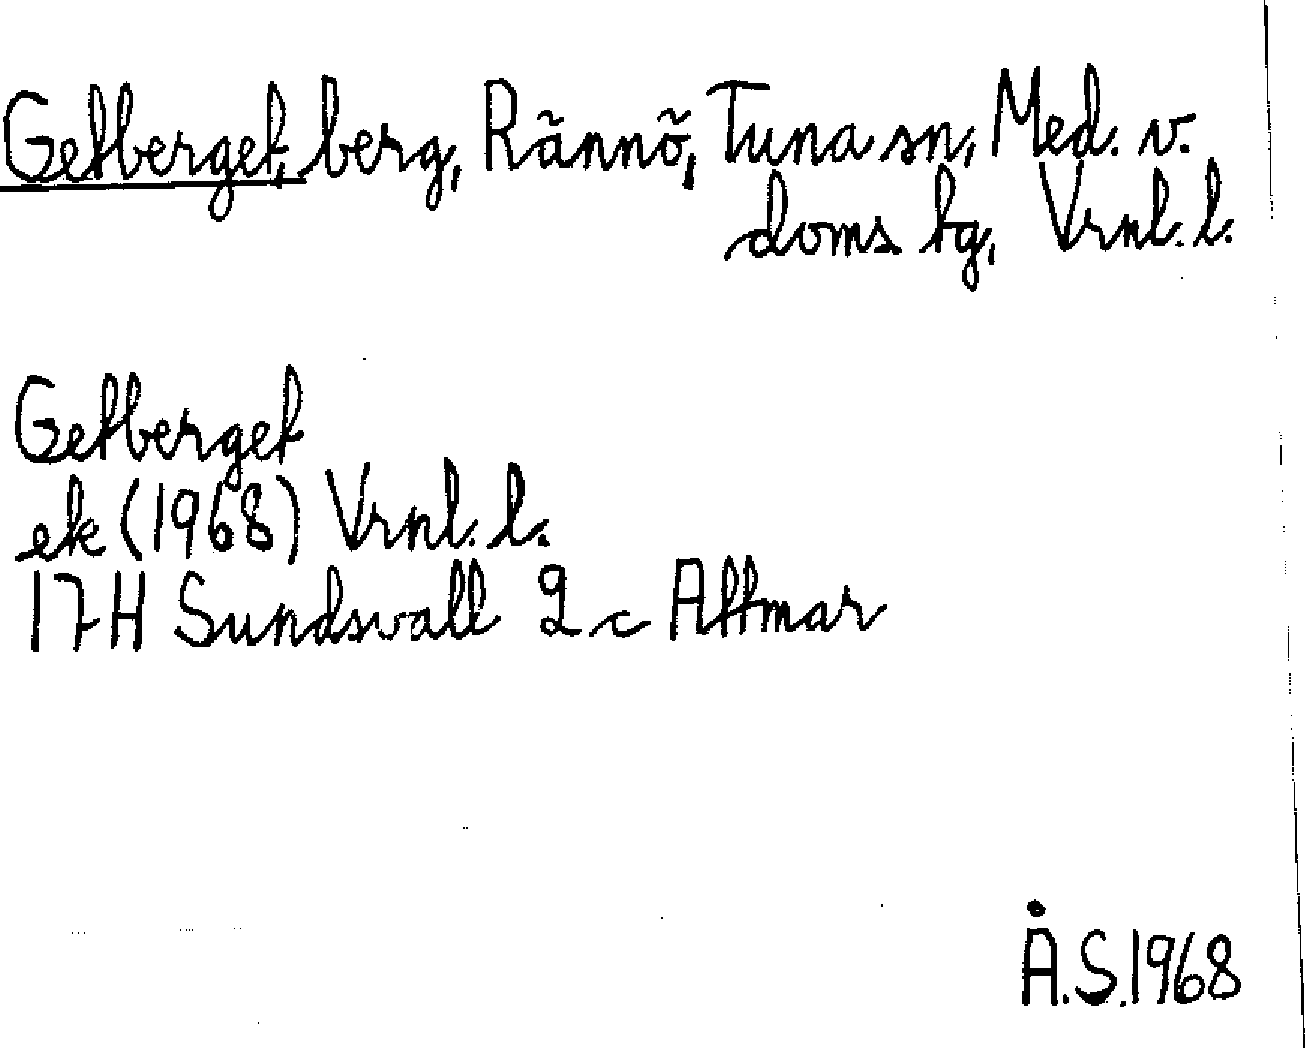 Getberget, berg, Rännö, Tuna sn, Med. v.
doms tg, Vrnl. l.
Getberget
ek (1968) Vrnl. l.
17H Sundsvall 2 c Attmar
Å.S.1968